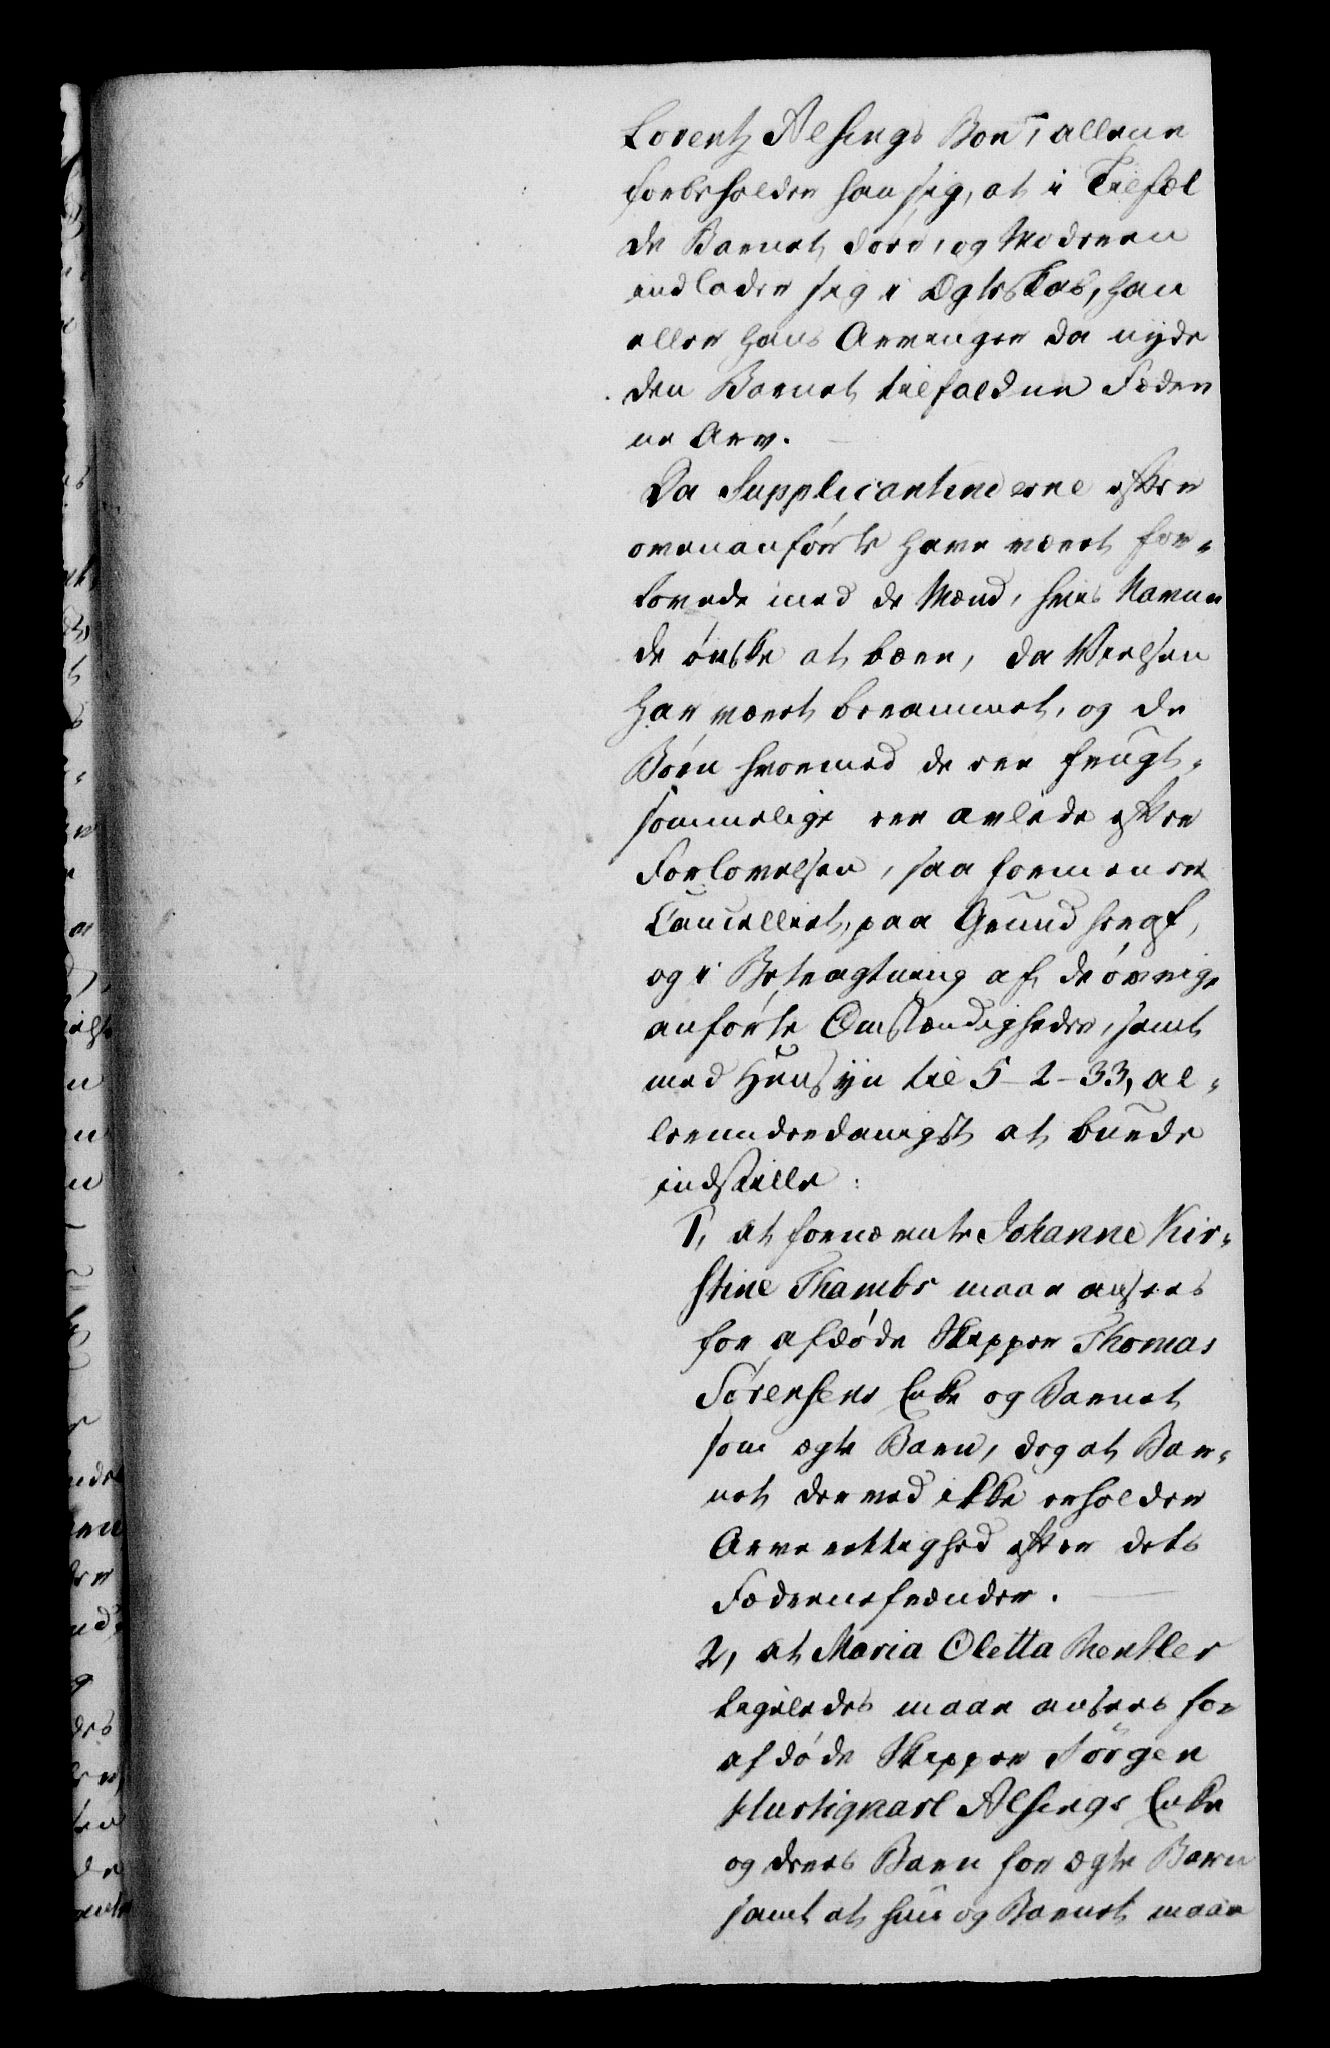 Lorentz Alsings Boe, allene
forbeholder han sig, at i Tilfæl
de Barnet døer, og Moderen
indlader sig i Ægteskab, han
eller hans Arvinger da nyde
den Barnet tilfaldne Fædre
ne Arv.
Da Supplicantinderne efter
ovenanførte have været for-
lovede med de Mænd, hvis Navne
de ønske at bære, da Vielsen
har været berammet, og de
Børn hvormed de ere frugt-
sommelige ere avlede efter
Forlovelsen, saa formener
Cancelliet, paa Grund heraf,
og i Betragtning af de øvrige
anførte Omstændigheder, samt
med Hensyn til 5-2-33, al-
lerunderdanigst at burde
indstille:
1, at fornævnte Johanne Kir-
stine Thambs maae ansees
for afdøde Skipper Thomas
Sørensens Enke og Barnet
som ægte Barn, dog at Bar-
net derved ikke erholder
Arverettighed efter dets
Fædrenefrænder.
2, at Maria Oletta Mentler
ligeledes maae ansees for
afdøde Skipper Jørgen
Hustigkarl Alsings Enke
og deres Barn for ægte Barn
samt at hun og Barnet maae